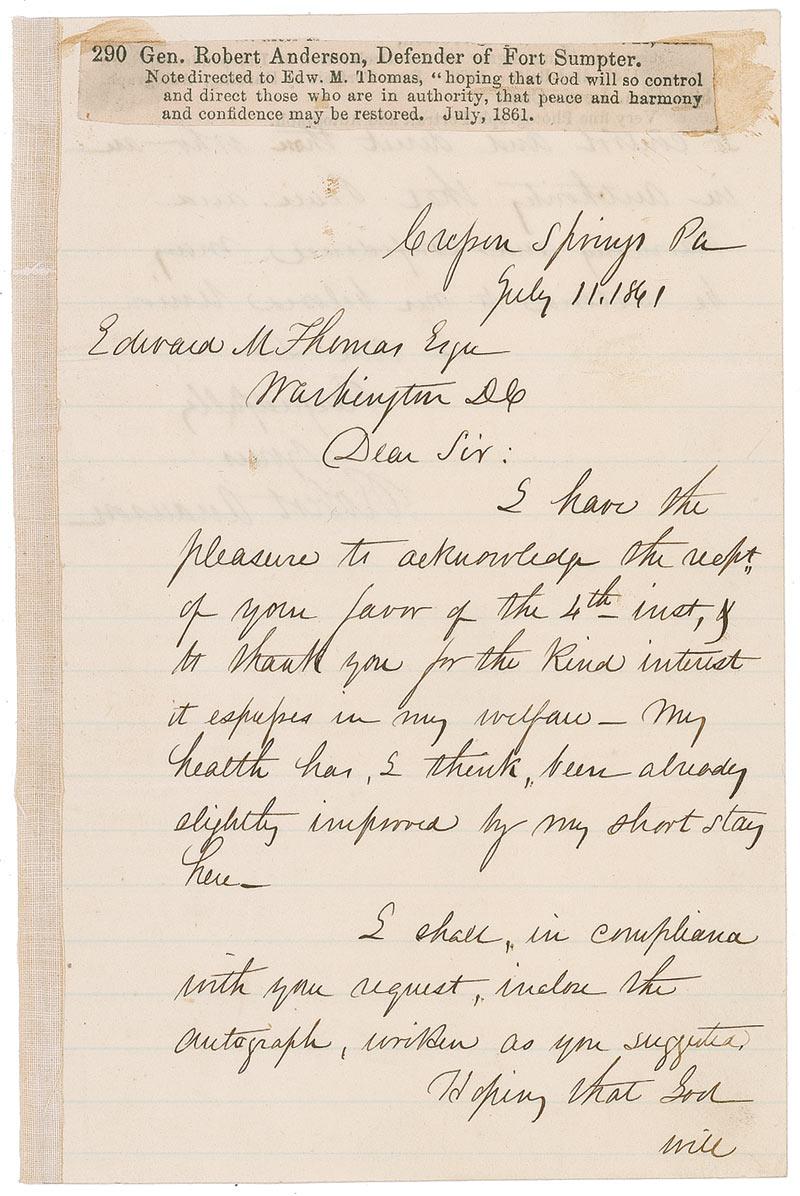 290 Gen. Robert Anderson, Defender of Fort Sumpter.
Note directed to Edw. M. Thomas, “hoping that God will so control
and direct those who are in authority, that peace and harmony
and confidence may be restored. July, 1861.
Cresson Springs Pa
July 11. 1861
Edward M Thomas Esqr
Washington DC
Dear Sir:
I have the
pleasure to acknowledge the recpt.
of your favor of the 4th inst, &
to thank you for the kind interest
it expresses in my welfare — My
health has, I think, been already
slightly improved by my short stay
here —
I shall, in compliance
with your request, inclose the
autograph, written as you suggested.
Hoping that God
will